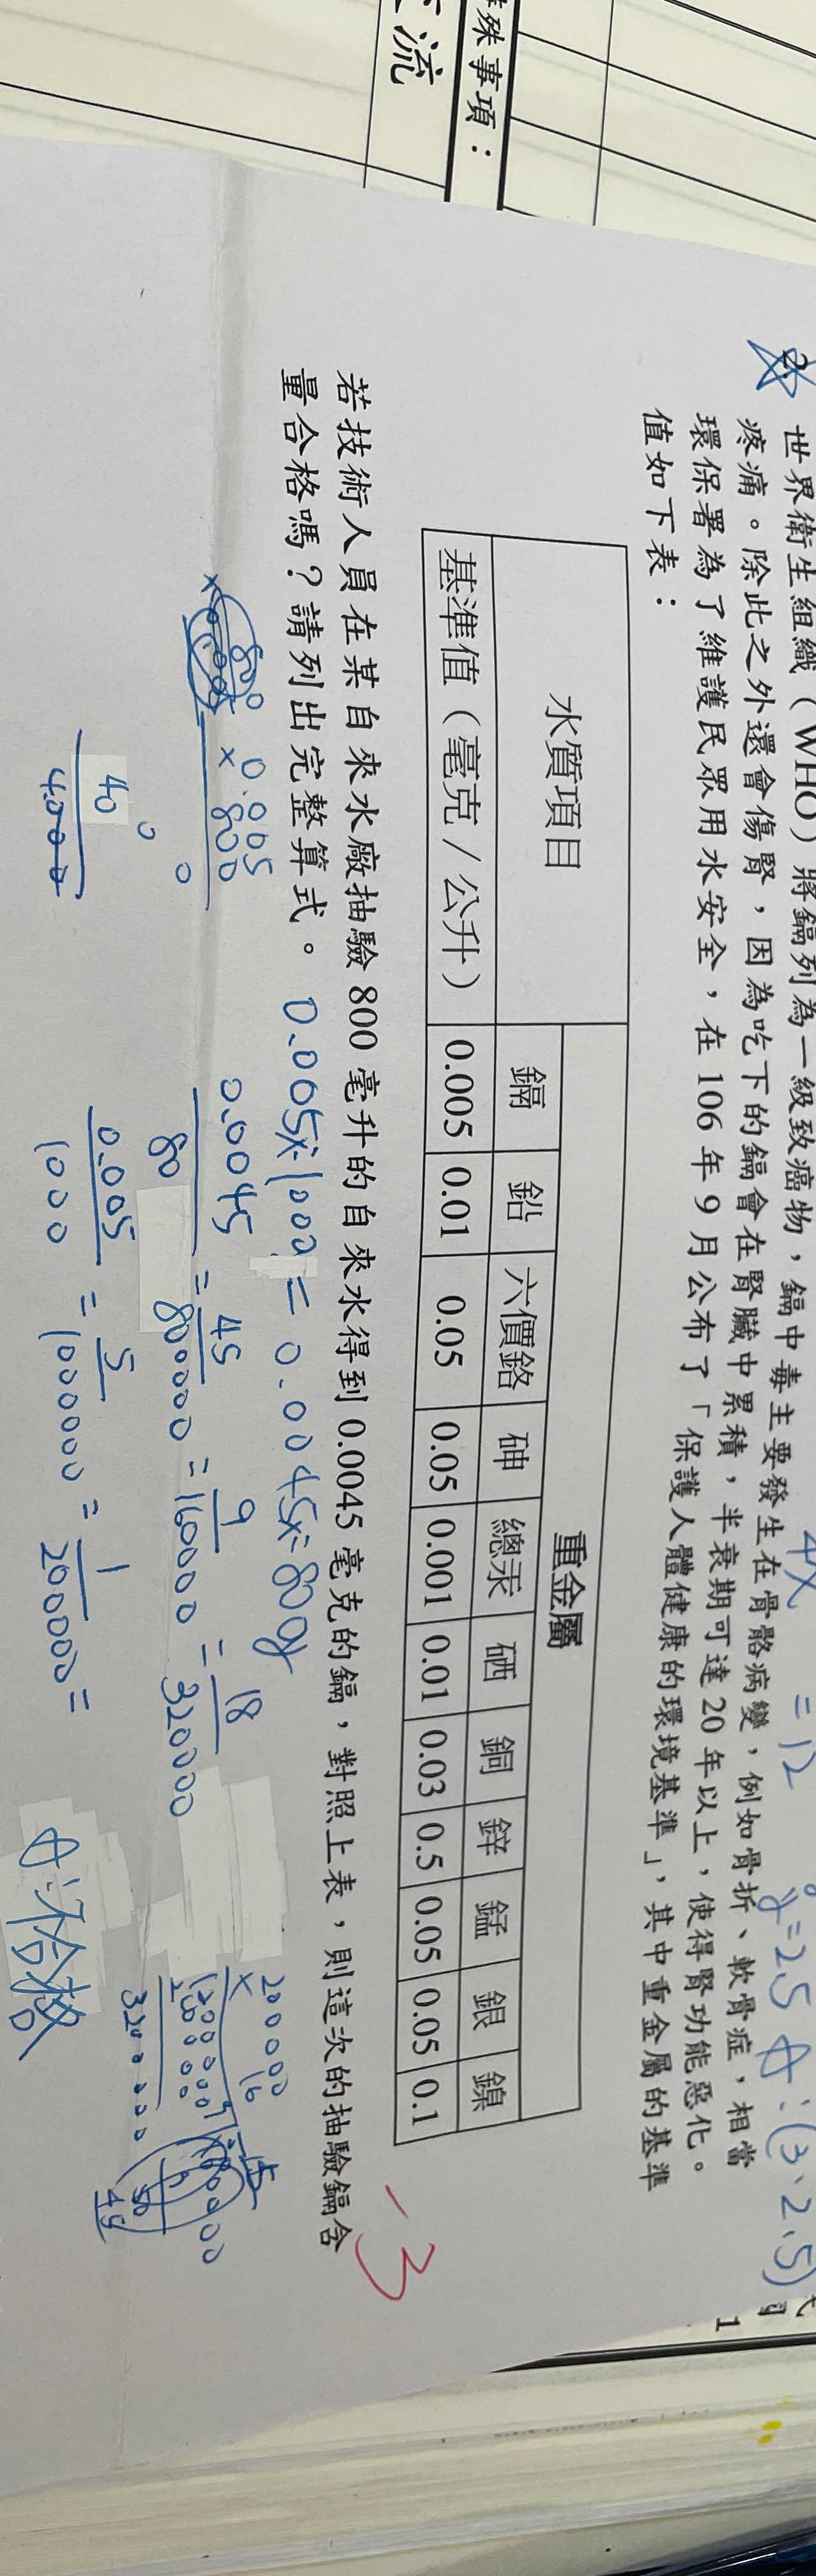 殊事項：
流
2. 世界衛生組織（WHO）將鎘列為一級致癌物，鎘中毒主要發生在骨骼病變，例如骨折、軟骨症，相當
疼痛。除此之外還會傷腎，因為吃下的鎘會在腎臟中累積，半衰期可達 20 年以上，使得腎功能惡化。
環保署為了維護民眾用水安全，在 106 年 9 月公布了「保護人體健康的環境基準」，其中重金屬的基準
值如下表：
水質項目
重金屬
鎘 鉛 六價鉻 砷 總汞 硒 銅 鋅 錳 銀 鎳
基準值（毫克／公升） 0.005 0.01 0.05 0.05 0.001 0.01 0.03 0.5 0.05 0.05 0.1
若技術人員在某自來水廠抽驗 800 毫升的自來水得到 0.0045 毫克的鎘，對照上表，則這次的抽驗鎘含
量合格嗎？請列出完整算式。
4x =12
y=2.5 A:(3、2.5)
-3
0.005×1000=0.0045×800
800
0.005
×800
0
40
4.000
0.0045/80 = 45/800000 = 9/160000 = 18/320000
0.005/1000 = 5/1000000 = 1/200000 =
200000
× 16
1200000
200000
3200000
A:不合格
1